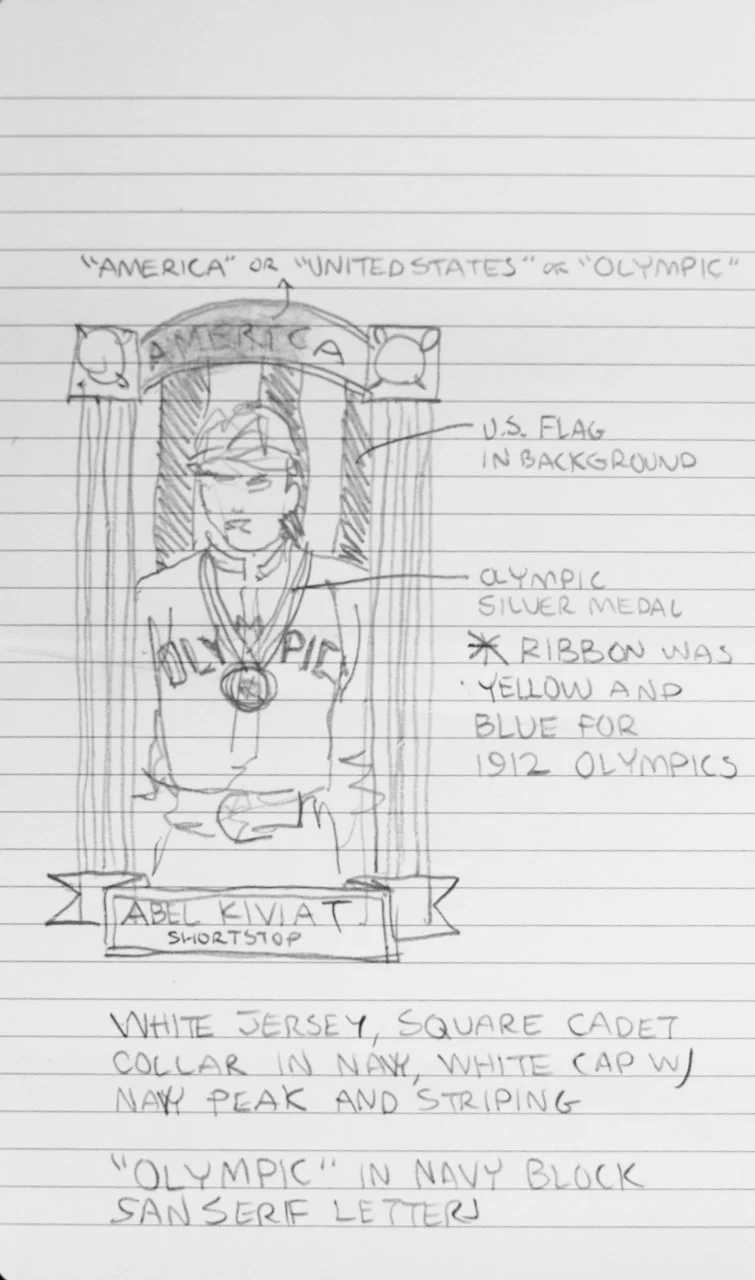 "AMERICA" OR "UNITED STATES" OR "OLYMPIC"
AMERICA
U.S. FLAG
IN BACKGROUND
OLYMPIC
SILVER MEDAL
* RIBBON WAS
YELLOW AND
BLUE FOR
1912 OLYMPICS
OLYMPIC
ABEL KIVIAT
SHORTSTOP
WHITE JERSEY, SQUARE CADET
COLLAR IN NAVY, WHITE CAP W/
NAVY PEAK AND STRIPING
"OLYMPIC" IN NAVY BLOCK
SAN SERIF LETTERS